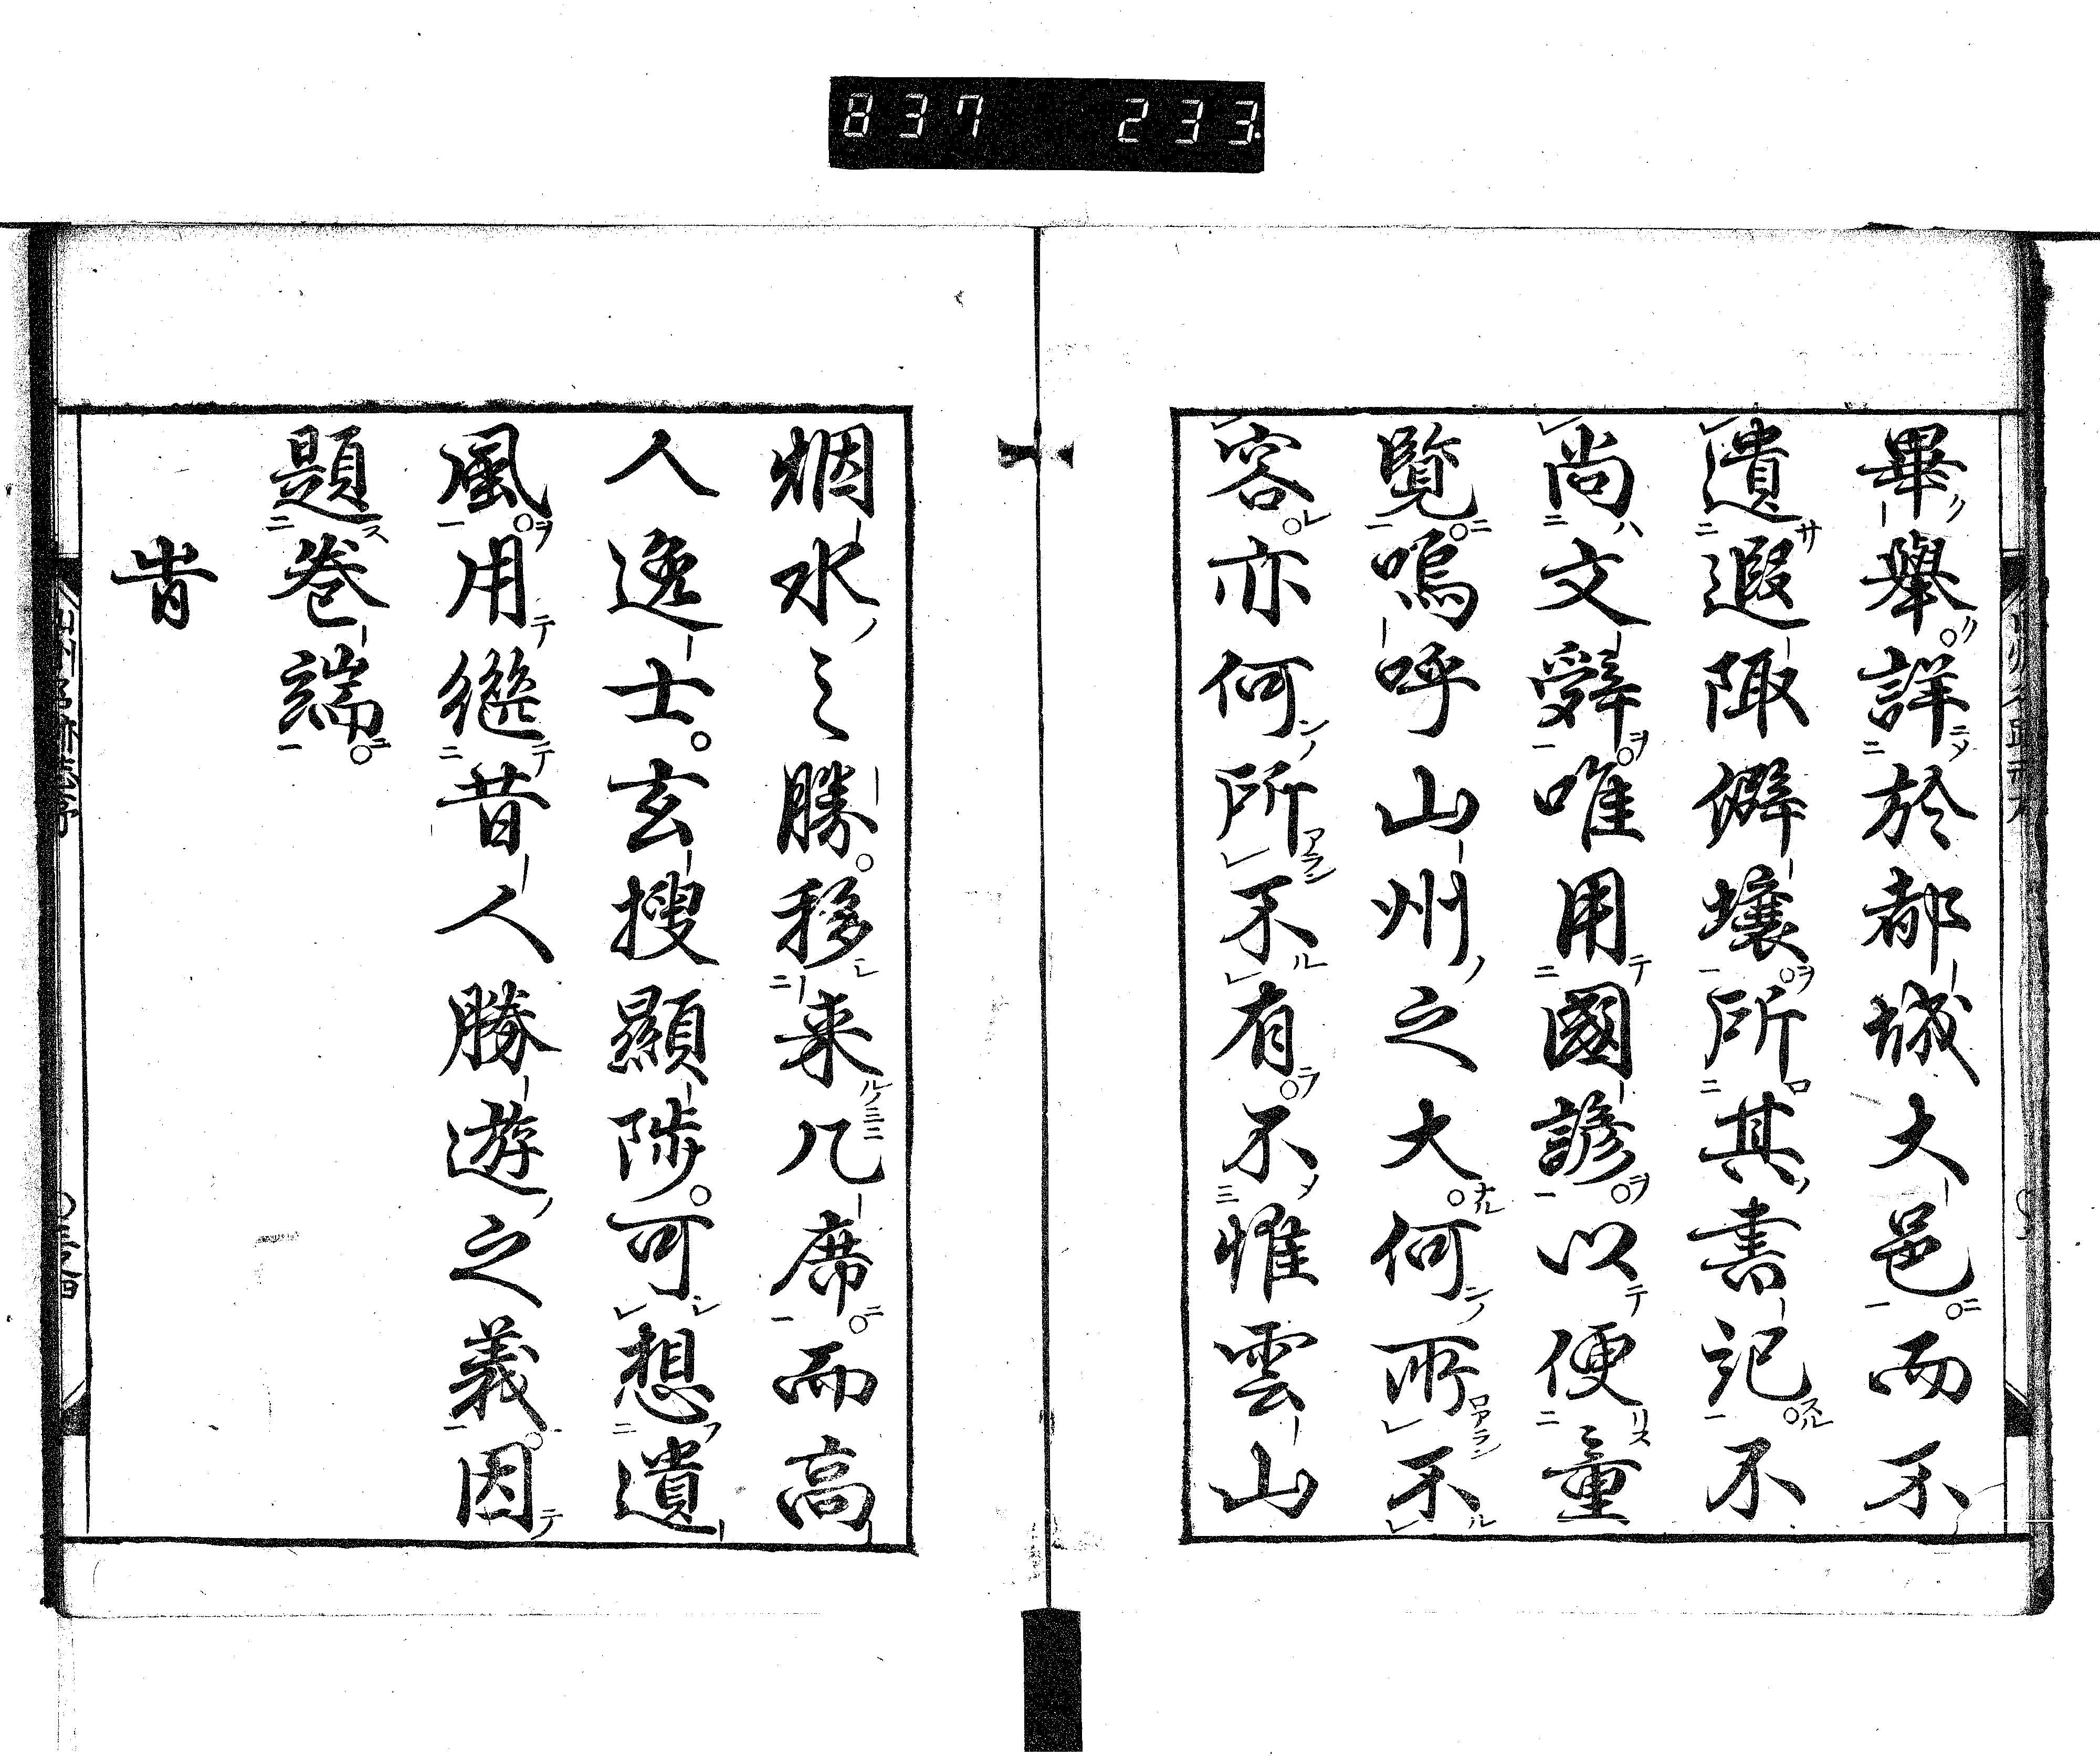 837 233
畢舉詳於都城大邑而不
遺遐陬僻壤所其書記不
尚文辭唯用國諺以便童
覧嗚呼山州之大何所不
容亦何所不有不惟雲山
烟水之勝移来几席而高
人逸士玄搜顯陟可想遺
風用繼昔人勝遊之義因
題巻端
旹